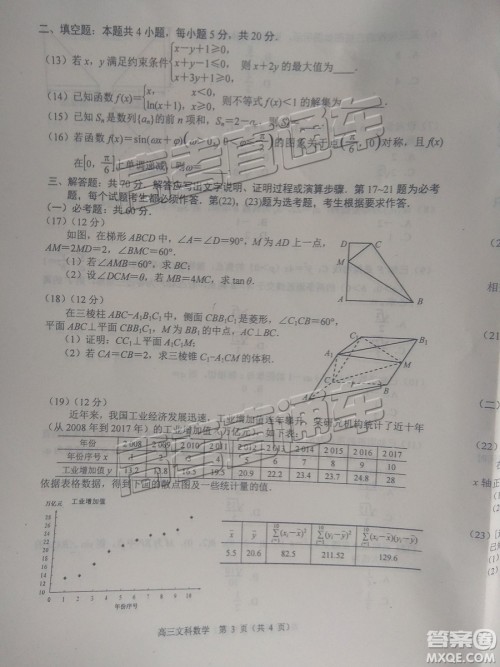 二、填空题：本题共 4 小题，每小题 5 分，共 20 分.
(13) 若 x，y 满足约束条件 { x-y+1≥0, x+y-1≤0, x+3y+1≥0, 则 x+2y 的最大值为____.
(14) 已知函数 f(x)={ x, x<0, ln(x+1), x≥0, 则不等式 f(x)<1 的解集为
(15) 已知 Sn 为数列{an}的前 n 项和，Sn=2-
(16) 若函数 f(x)=sin(ωx+φ) 的图象关于点(π/6, 0)对称，且 f(x)
在[0, π/6]上单调递减，则 ω=
三、解答题：共 70 分. 解答应写出文字说明，证明过程或演算步骤. 第 17~21 题为必考
题，每个试题考生都必须作答. 第(22)、(23)题为选考题，考生根据要求作答.
(一) 必考题：共 60 分.
(17) (12 分)
如图，在梯形 ABCD 中，∠A=∠D=90°，M 为 AD 上一点，
AM=2MD=2，∠BMC=60°.
(1) 若∠AMB=60°，求 BC；
(2) 设∠DCM=θ，若 MB=4MC，求 tan θ.
D C
M
A B
(18) (12 分)
在三棱柱 ABC-A₁B₁C₁ 中，侧面 CBB₁C₁ 是菱形，∠CBB₁=60°，
平面 ABC⊥平面 CBB₁C₁，M 为 BB₁ 的中点，AC⊥BC.
(1) 证明：CC₁⊥平面 A₁C₁M；
(2) 若 CA=CB=2，求三棱锥 C₁-A₁CM 的体积.
C₁ B₁
A₁ M
C
A B
(19) (12 分)
近年来，我国工业经济发展迅速，工业增加值连年攀升，某研究机构统计了近十年
(从 2008 年到 2017 年) 的工业增加值(万亿元)，如下表：
年份 2 008 2 009 2 010 2 011 2 012 2 013 2 014 2 015 2 016 2 017
年份序号 x 1 2 3 4 5 6 7 8 9 10
工业增加值 y 13.2 13.8 16.5 19.5 20.9 22.2 23.4 23.7 24.8 28
依据表格数据，得到下面的散点图及一些统计量的值.
万亿元 工业增加值
0 1 2 3 4 5 6 7 8 9 10
年份序号
x̄ ȳ ∑(xᵢ-x̄)² ∑(yᵢ-ȳ)² ∑(xᵢ-x̄)(yᵢ-ȳ)
5.5 20.6 82.5 211.52 129.6
高三文科数学 第 3 页（共 4 页）
高考直通车
高考直通车
答案圈